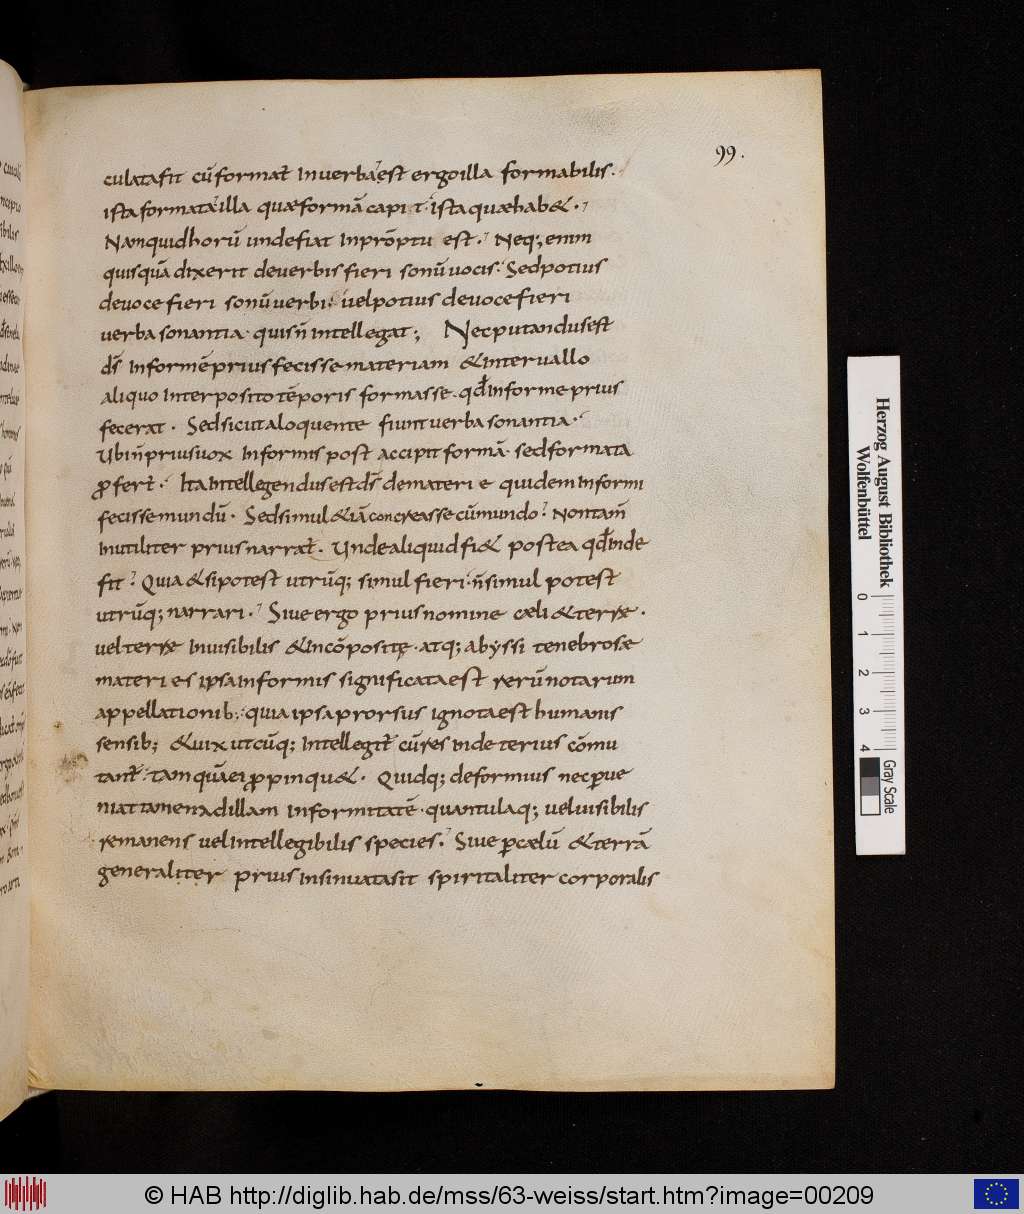 99.
culatafit cũ format̃ Inuerba est ergoilla formabilis.
ista formata illa quæ formã capit. ista quæ hab&.
Nam quid horũ undefiat Inprõptu est. Neq; enim
quisquã dixerit deuerbis fieri sonũ uocis. Sed potius
deuoce fieri sonũ uerbi. uel potius deuoce fieri
uerba sonantia quis ñ intellegat; Nec putandus est
dš Informẽ prius fecisse materiam & interuallo
aliquo Interposito tẽporis formasse. qđ informe prius
fecerat. Sed sicut a loquente fiunt uerba sonantia.
Ubi ñ prius uox Informis post accipit formã sed formata
ꝓfert̃. Ita Intellegendus est dš de materie quidem Informi
fecisse mundũ. Sed simul & iã concreasse cũ mundo. Non tam̃
Inutiliter prius narrat̃. Unde aliquid fi& postea qđ inde
fit. Quia & si potest utrũq; simul fieri. ñ simul potest
utrũq; narrari. Siue ergo prius nomine cæli & terræ.
uel terræ Inuisibilis & Incõposite. atq; abyssi tenebrosæ
materies ipsa informis significata est rerũ notarum
appellationib; quia ipsa prorsus ignota est humanis
sensib; & uix utcũq; Intellegit̃ cũ res inde terius cõmu
tant̃. tamquã ei ꝓpinqu&. Quidq; deformius nec ꝑue
niat tamen ad illam informitatẽ. quantulaq; uel uisibilis
remanens uel Intellegibilis species. Siue ꝑ cælũ & terrã
generaliter prius insinuata sit spiritaliter corporalis
Herzog August Bibliothek
Wolfenbüttel
0 1 2 3 4
Gray Scale
© HAB http://diglib.hab.de/mss/63-weiss/start.htm?image=00209